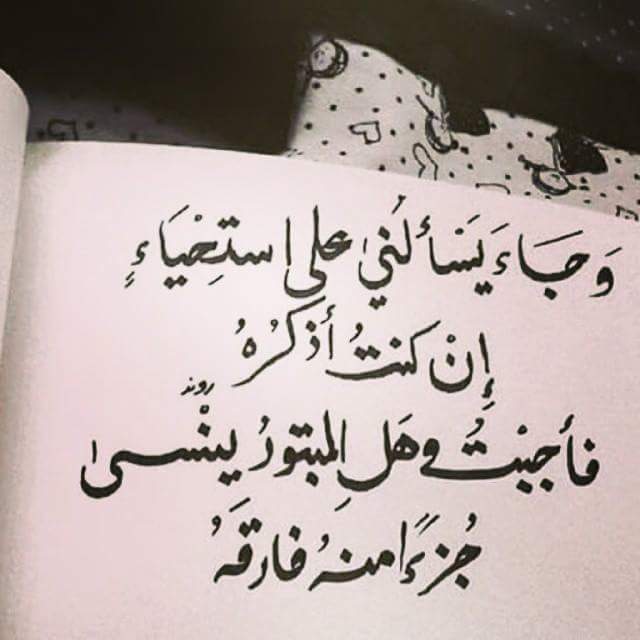 وَجَاءَ يَسْألُنيٰ على اِستحْيَاءٍ
إِنْ كنتُ أذكُرُهُ
روند
فأجبْتُ وهَلِ المبتورُ ينْسىٰ
جُزءًا منهُ فارقَهُ